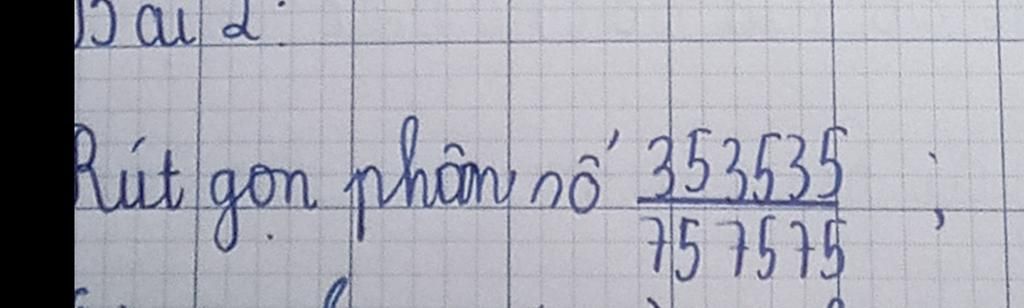 Bài 2:
Rút gọn phân số 353535 ;
757575